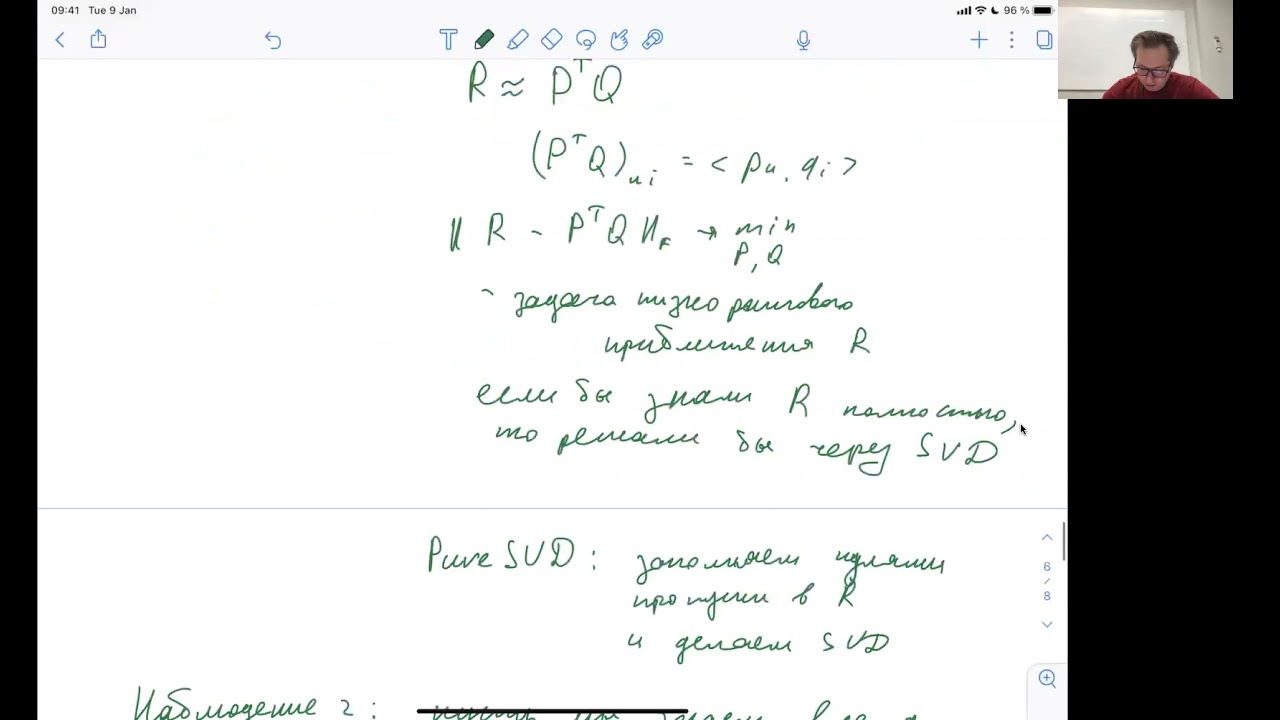 09:41 Tue 9 Jan
96 %
R ≈ PᵀQ
(PᵀQ)ᵤᵢ = < pᵤ, qᵢ >
‖ R - PᵀQ ‖_F → min
P, Q
~ задача низкорангового
приближения R
если бы знали R полностью,
то решали бы через SVD
6
/
8
PureSVD : заполняем нулями
пропуски в R
и делаем SVD
Наблюдение 2 :